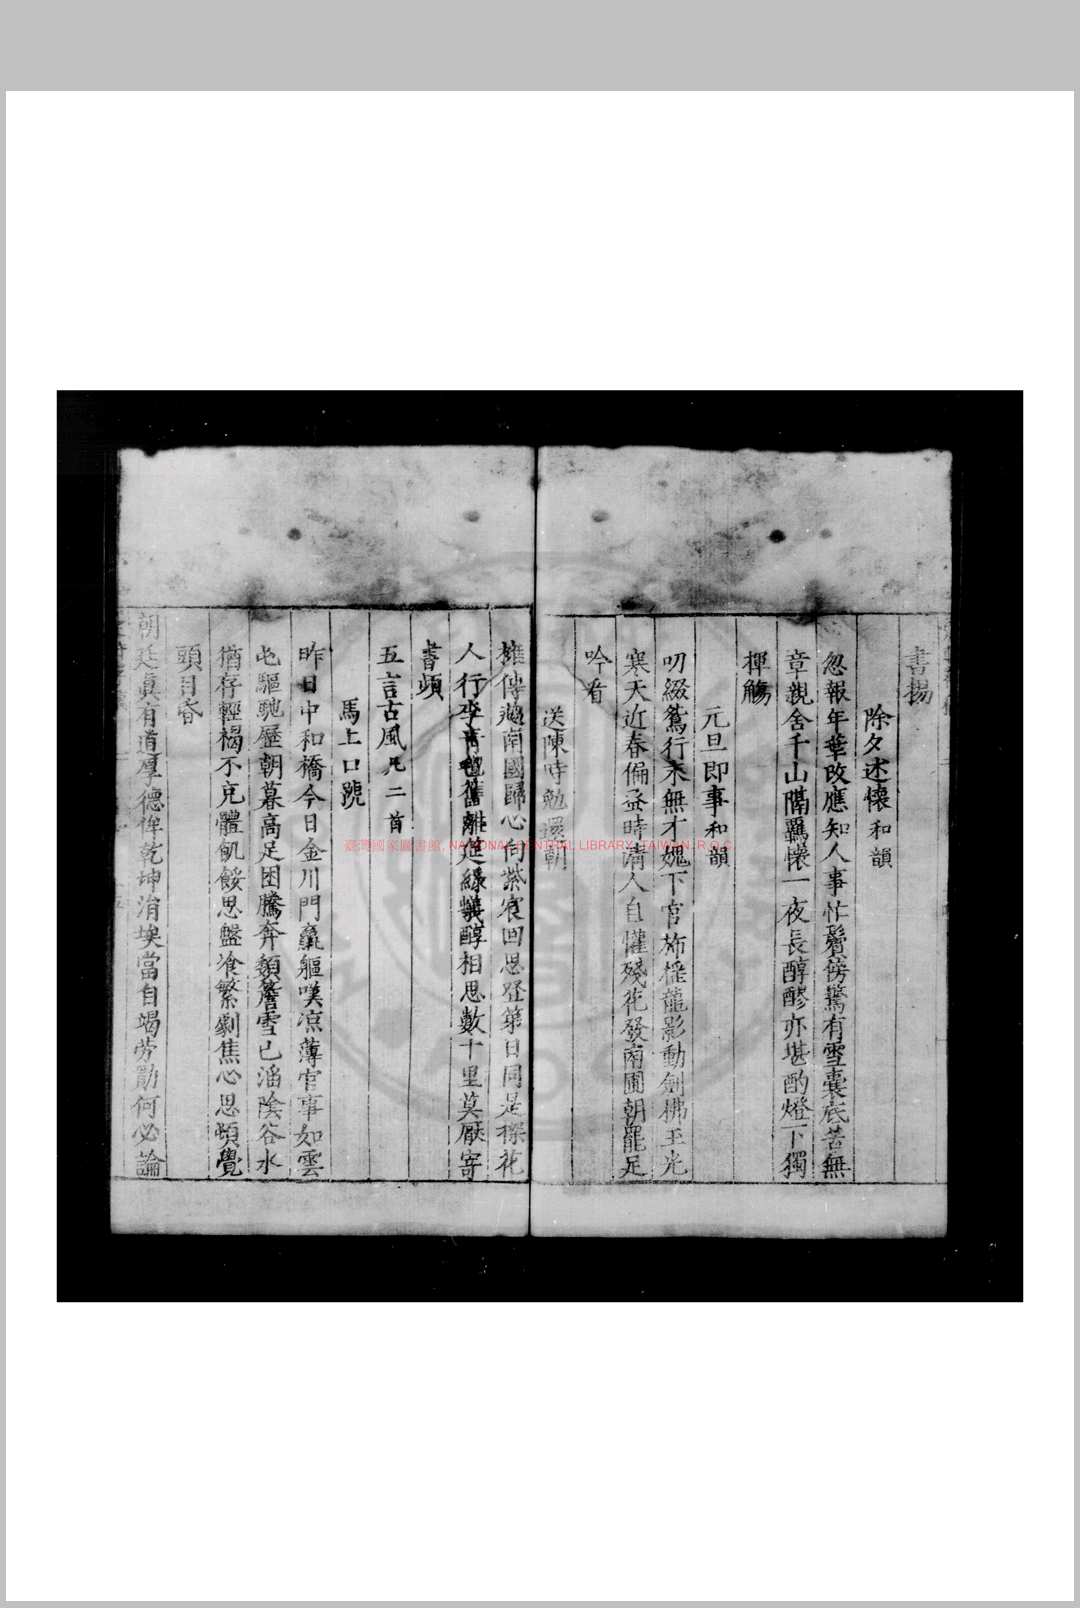 書揚
除夕述懷和韻
忽報年華改應知人事忙鬢傍驚有雪囊底苦無
章親舍千山隔羈懷一夜長醇醪亦堪酌燈下獨
揮觴
元旦即事和韻
叨綴鵞行末無才媿下官旆搖龍影動劍拂玉光
寒天近春偏盎時清人自懽殘花發南圃朝罷足
吟看
送陳時勉還朝
擁傳過南國歸心向紫宸回思登第日同是探花
人行李青氊舊離筵綠蟻醇相思數十里莫厭寄
書頻
五言古風凡二首
馬上口號
昨日中和橋今日金川門羸軀嘆凉薄官事如雲
屯驅馳歷朝暮高足困騰奔鬚簷雪已滿陰谷水
猶存輕褐不充體飢餒思盤飱繁劇焦心思頓覺
頭目昏
朝廷真有道厚德侔乾坤涓埃當自竭勞勛何必論
臺灣國家圖書館, NATIONAL CENTRAL LIBRARY, TAIWAN, R.O.C.